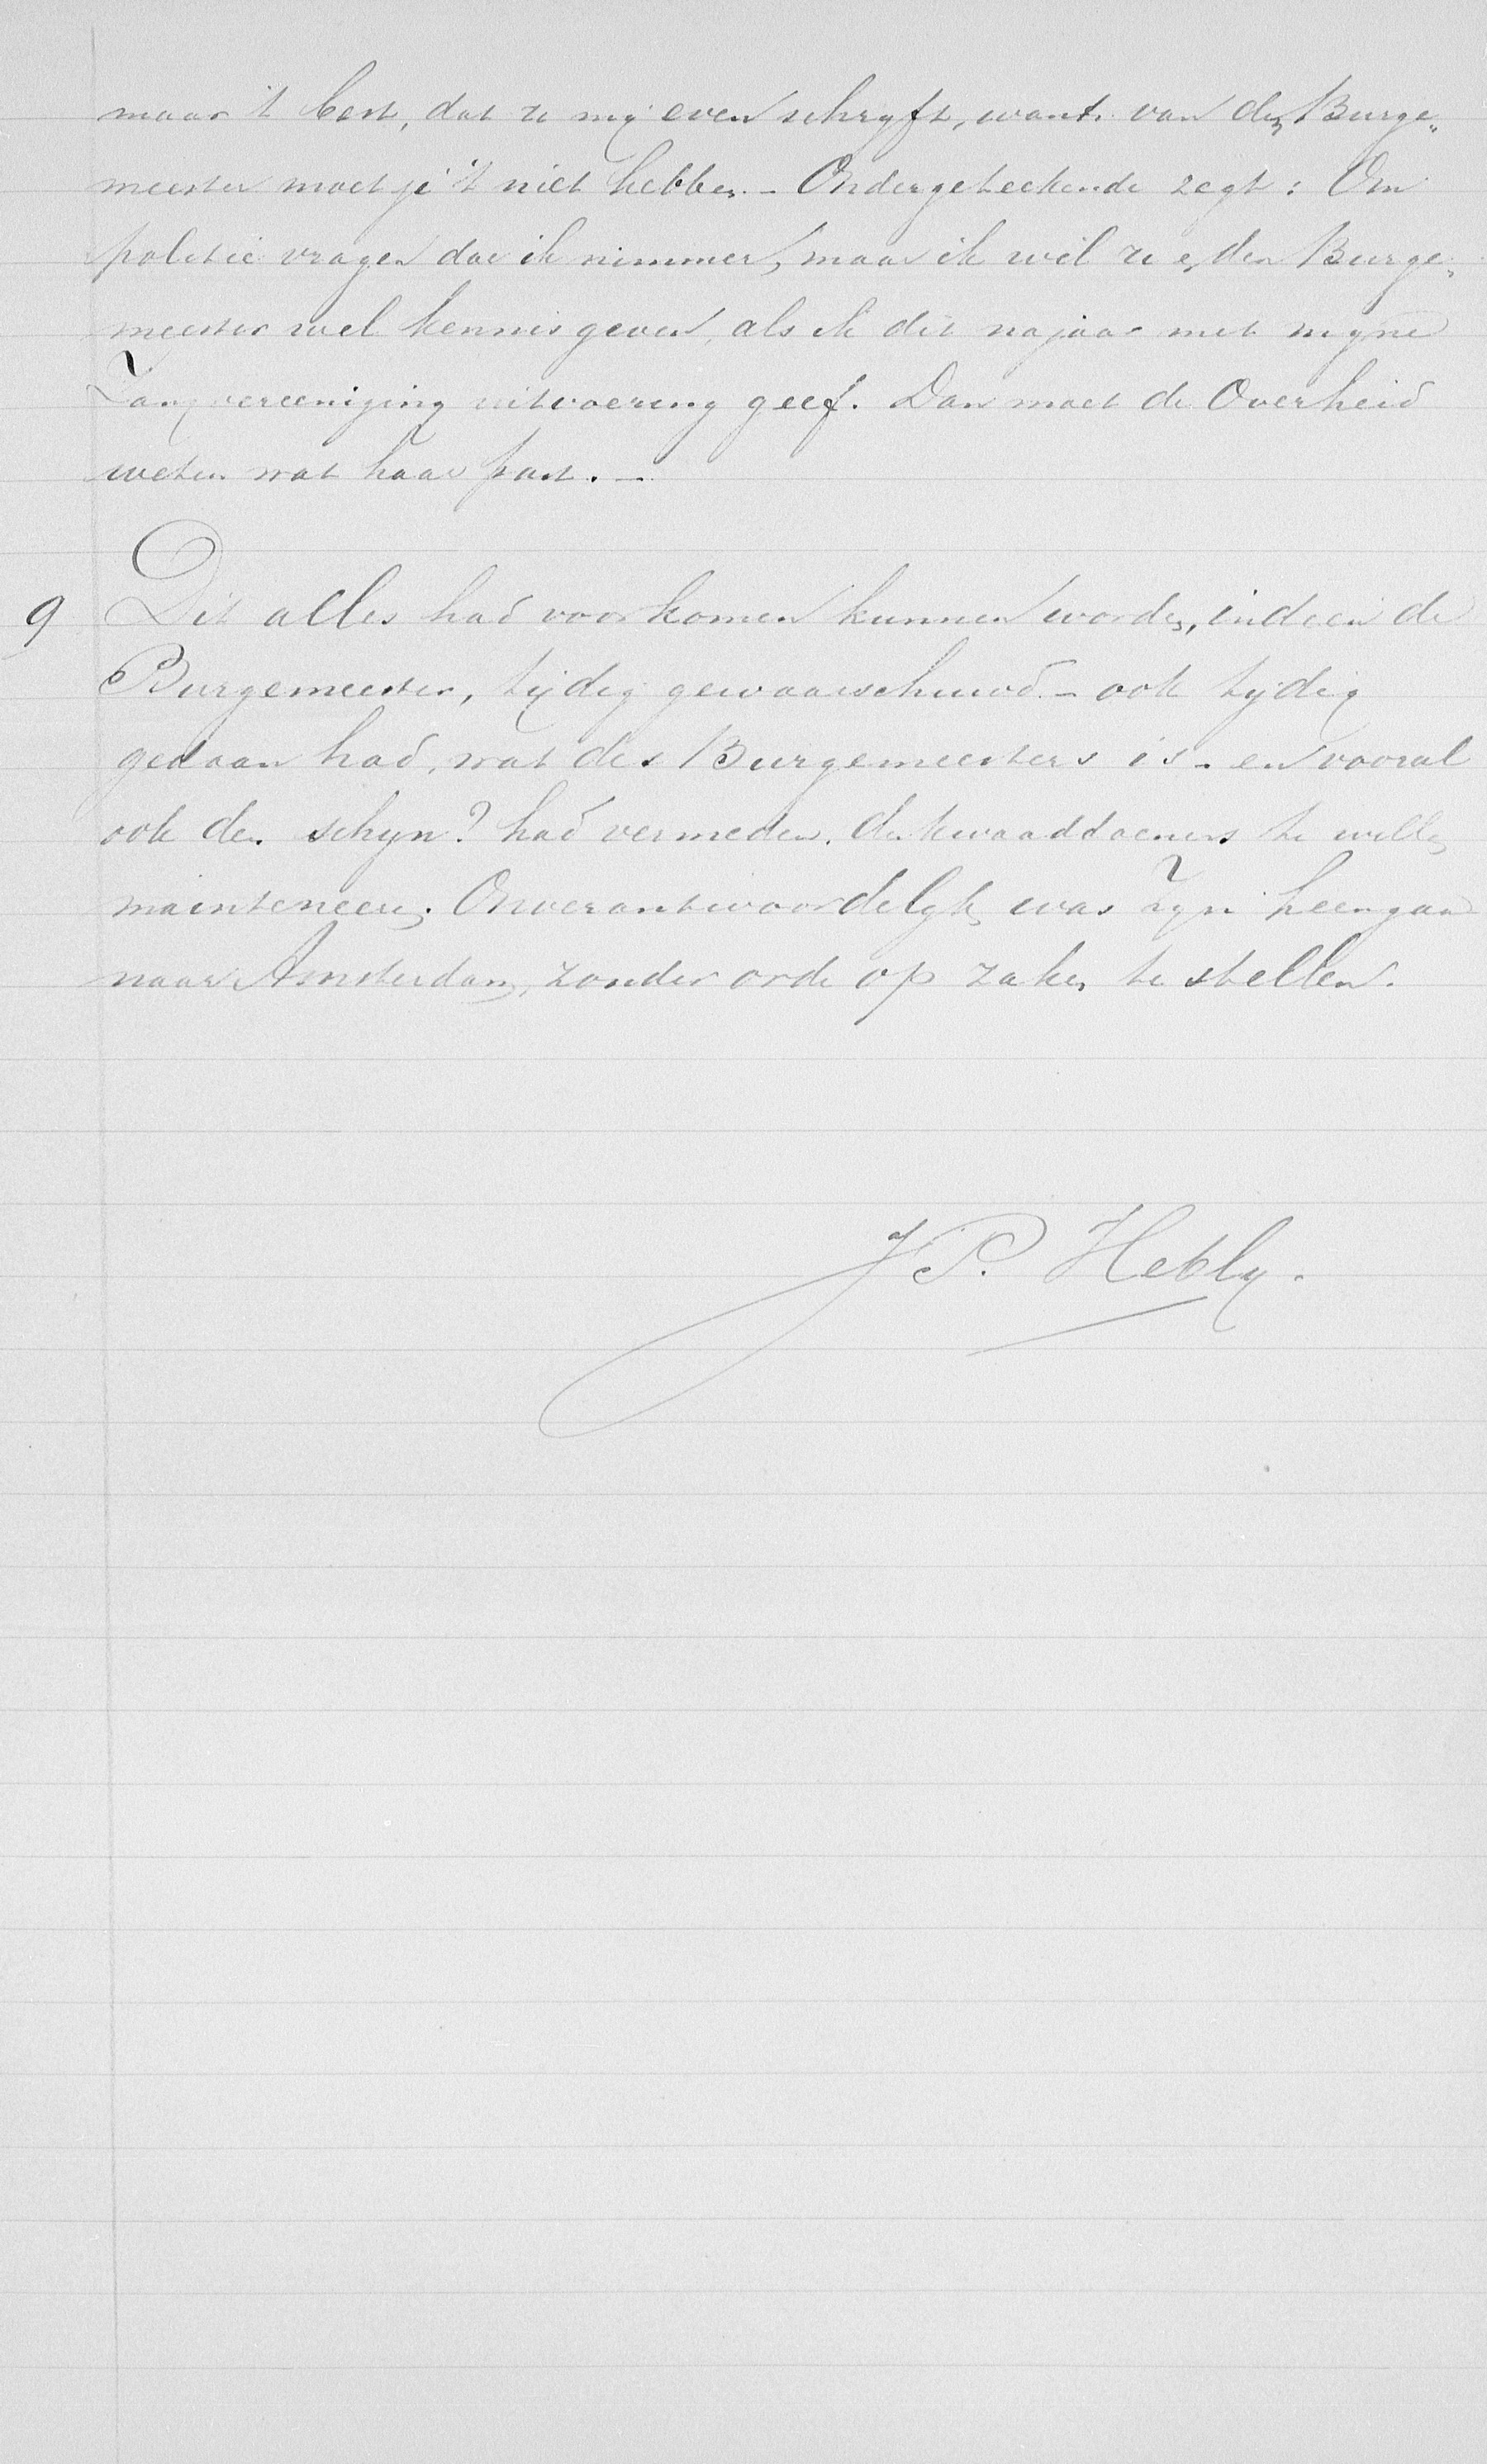 maar 't best, dat ze mij even schrijft, want van den Burge„
meester moet je 't niet hebben. – Ondergeteekende zegt: Om
politie vragen doe ik nimmer, maar ik wil ze en den Burge„
meester wel kennis geven, als ik dit najaar met mijne
Zangvereeniging uitvoering geef. Dan moet de Overheid
weten wat haar past. –
9 Dit alles had voorkomen kunnen worden, indien de
Burgemeester, tijdig gewaarschuwd – ook tijdig
gedaan had, wat des Burgemeesters is – en vooral
ook den schijn? had vermeden, de kwaaddoeners te willen
mainteneeren. Onverantwoordelijk was zijn heengaan
naar Amsterdam, zonder orde op zaken te stellen.
J P. Hebly.